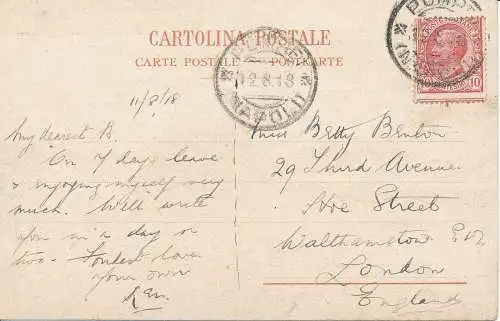 CARTOLINA POSTALE
CARTE POSTALE POSTKARTE
POMPEI
12.8.18
NAPOLI
10
11/8/18
My dearest B.
On 7 days leave
& enjoying myself very
much. Will write
you in a day or
two. Fondest love
Your own
Miss Betty Benton
29 Third Avenue
Hoe Street
Walthamstow
London
England